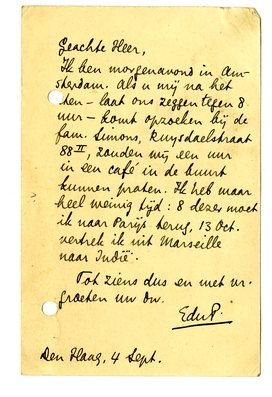 Geachte Heer,
Ik ben morgenavond in Am-
sterdam. Als u mij na het
eten – laat ons zeggen tegen 8
uur – komt opzoeken bij de
fam. Simons, Ruysdaelstraat
88 II, zouden wij een uur
in een café in de buurt
kunnen praten. Ik heb maar
heel weinig tijd: 8 dezer moet
ik naar Parijs terug, 13 Oct.
vertrek ik uit Marseille
naar Indië.
Tot ziens dus en met vr.
groeten uw dw.
EduP.
Den Haag, 4 Sept.